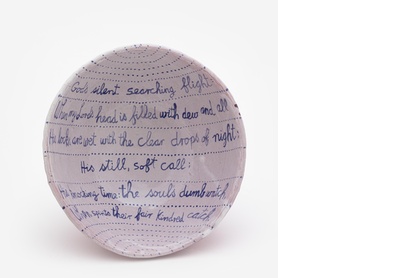 God's silent searching flight:
When my Lord's head is filled with dew and all
His locks are wet with the clear drops of night;
His still, soft call;
His knocking time; the souls dumb watch,
When spirits their fair kindred catch